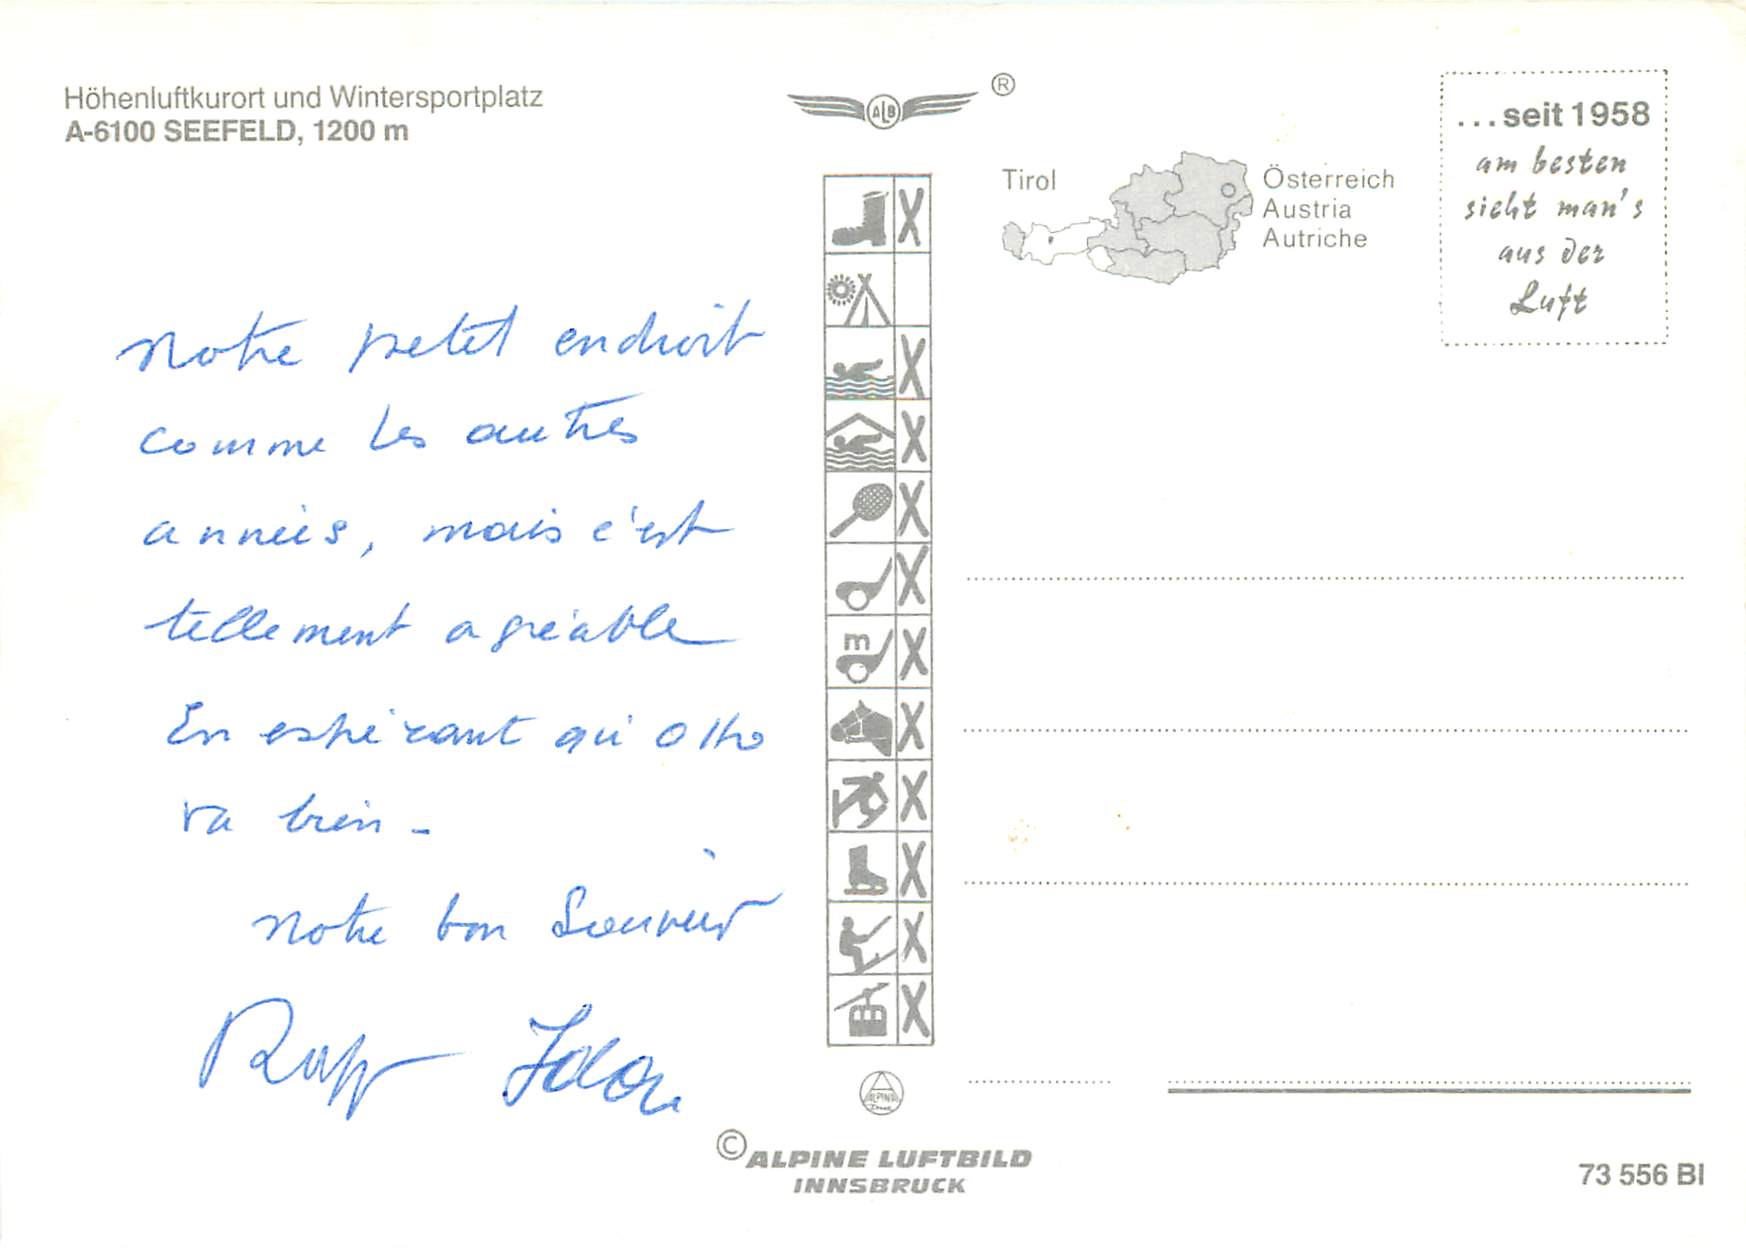 Höhenluftkurort und Wintersportplatz
A-6100 SEEFELD, 1200 m
Notre petit endroit
comme les autres
années, mais c'est
tellement agréable
En espérant qu'Otto
va bien -
Notre bon Souvenir
Rapp
ALB
®
m
ALPINA
Druck
© ALPINE LUFTBILD
INNSBRUCK
Tirol
Österreich
Austria
Autriche
...seit 1958
am besten
sieht man's
aus der
Luft
73 556 BI